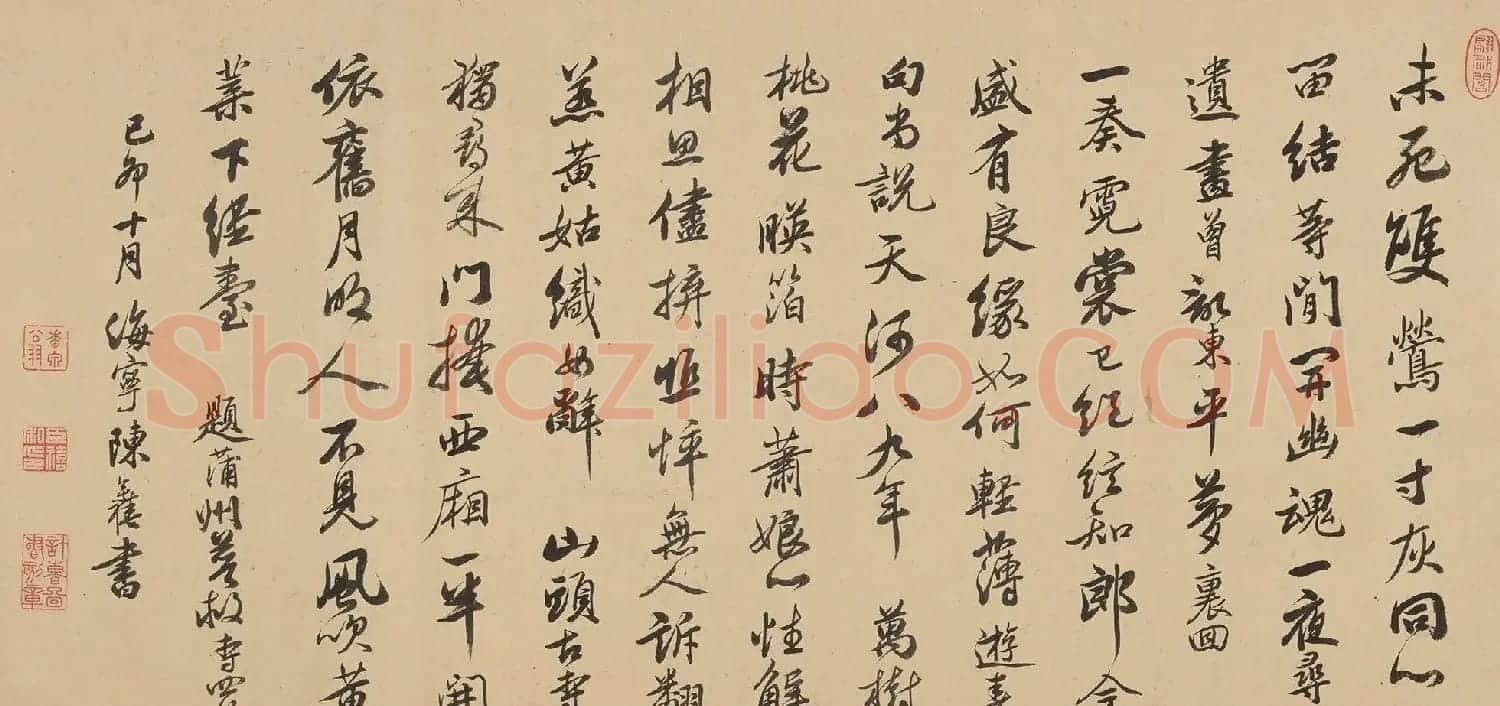 未死雙鶯一寸灰同心
留結等閒開幽魂一夜尋
遺畫曾記東平夢裏回
一奏霓裳已絃知郎今
盛有良緣如何輕薄遊春
句尚說天河八九年 萬樹
桃花暎箔時蕭娘心性解
相思儘拚悴無人訴翻
羨黃姑織女辭 山頭古寺
獨尋來門掩西廂一半開
依舊月明人不見風吹黃
葉下經臺 題蒲州普救寺四
己卯十月海寧陳書
Shufaziliao.COM